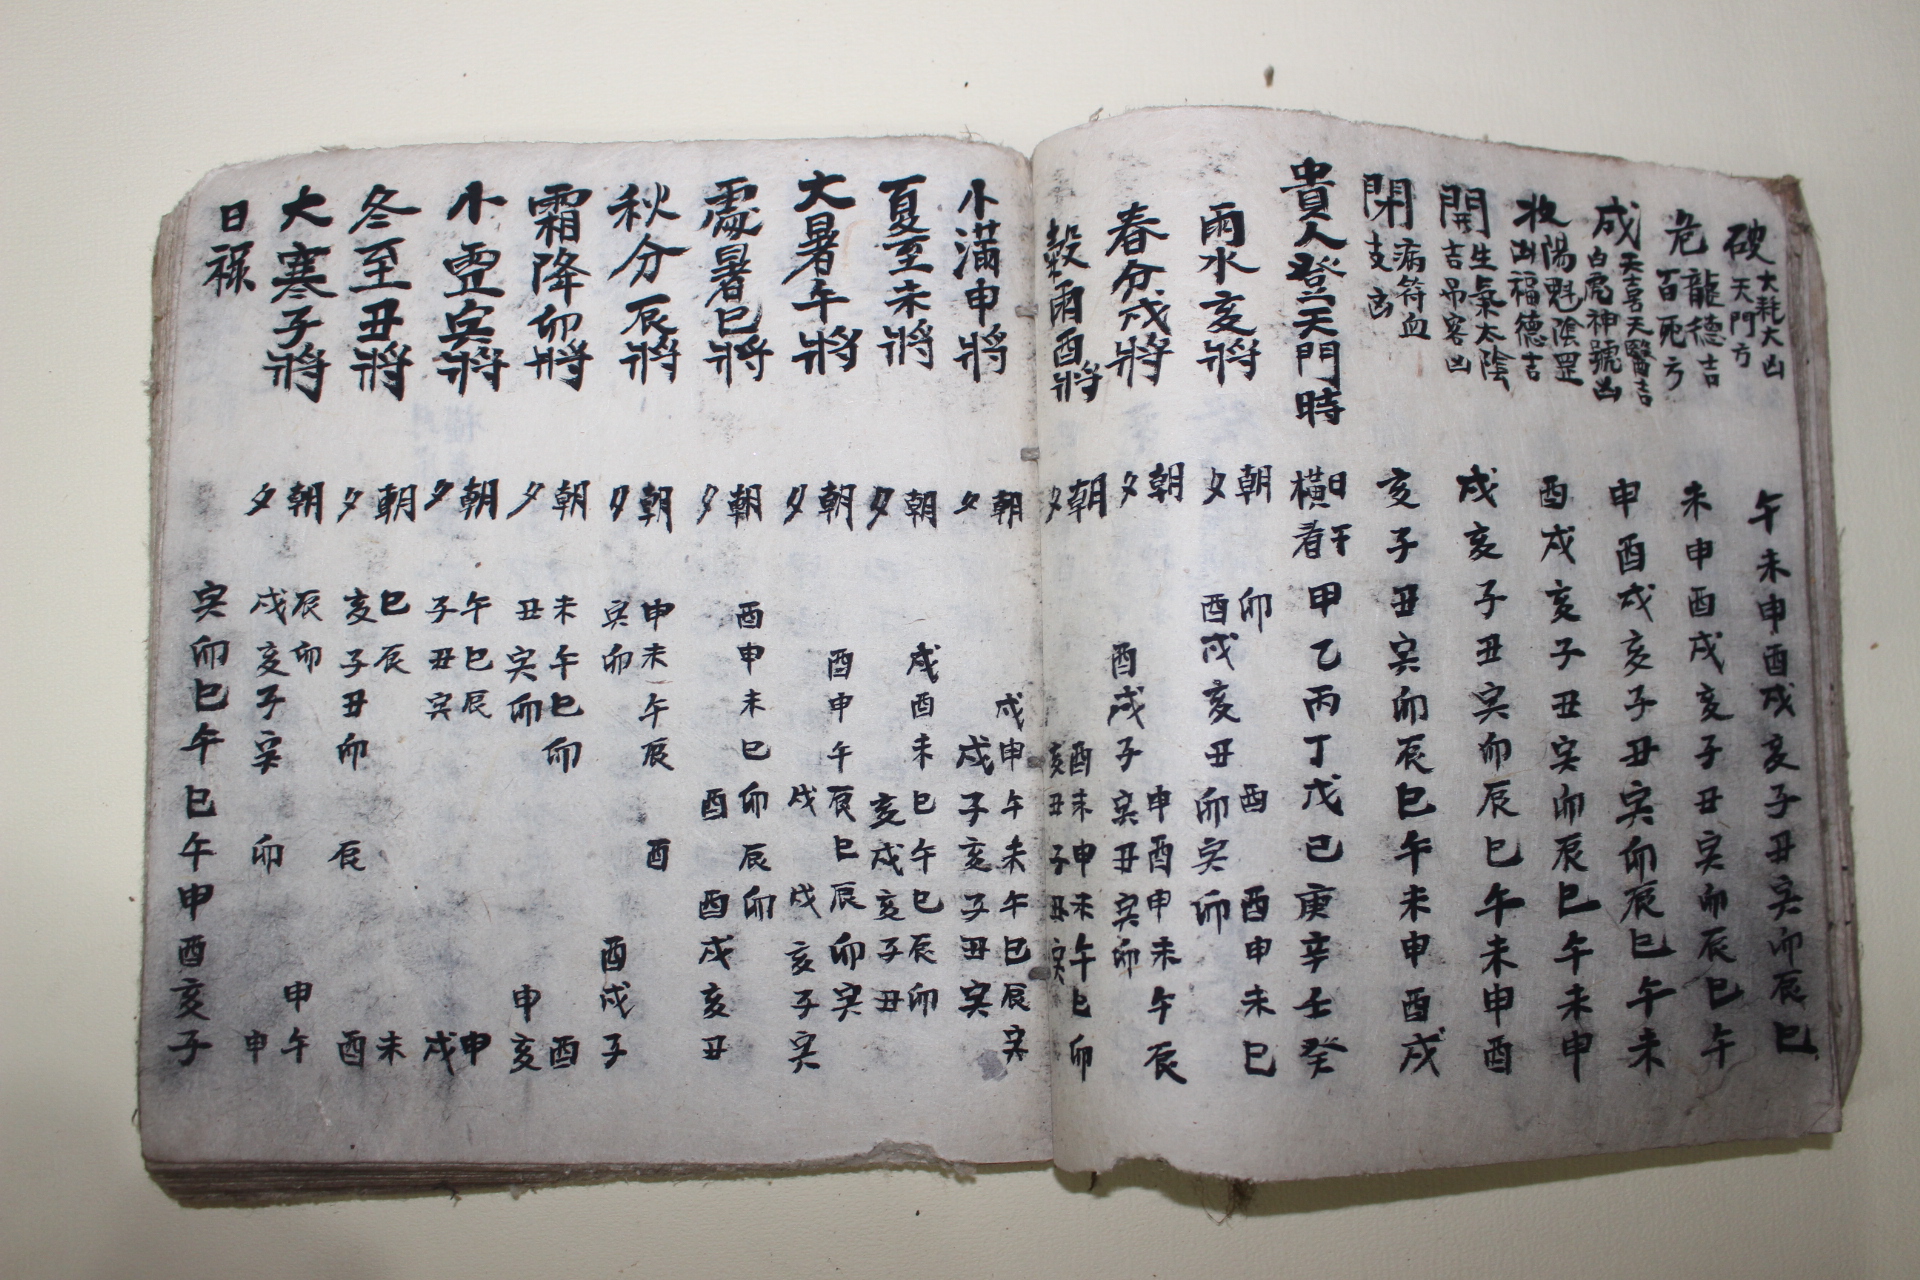 破 大耗大凶 天門方 午未申酉戌亥子丑寅卯辰巳
危 龍德吉 百死方 未申酉戌亥子丑寅卯辰巳午
成 天喜天醫吉 白虎神號凶 申酉戌亥子丑寅卯辰巳午未
收 陽魁陰罡 凶福德吉 酉戌亥子丑寅卯辰巳午未申
開 生氣太陰 吉吊客凶 戌亥子丑寅卯辰巳午未申酉
閉 病符血 支凶 亥子丑寅卯辰巳午未申酉戌
貴人登天門時 日干 橫看 甲乙丙丁戊己庚辛壬癸
雨水亥將 朝 卯 酉 酉申未巳
夕 酉戌亥丑卯寅卯
春分戌將 朝 申酉申未午辰
夕 酉戌子寅丑寅卯
穀雨酉將 朝 酉未申未午巳卯
夕 亥丑子丑寅
小滿申將 朝 戌申午未午巳辰寅
夕 戌子亥子丑寅
夏至未將 朝 戌酉未巳午巳辰卯
夕 亥戌亥子丑
大暑午將 朝 酉申午辰巳辰卯寅
夕 戌 戌亥子寅
處暑巳將 朝 酉申未巳卯辰卯
夕 酉 酉戌亥丑
秋分辰將 朝 申未午辰 酉
夕 寅卯 酉戌子
霜降卯將 朝 未午巳卯 酉
夕 丑寅卯 申亥
小雪寅將 朝 午巳辰 申
夕 子丑寅 戌
冬至丑將 朝 巳辰 未
夕 亥子丑卯 辰 酉
大寒子將 朝 辰卯 申午
夕 戌亥子寅 卯 申
日祿 寅卯巳午巳午申酉亥子